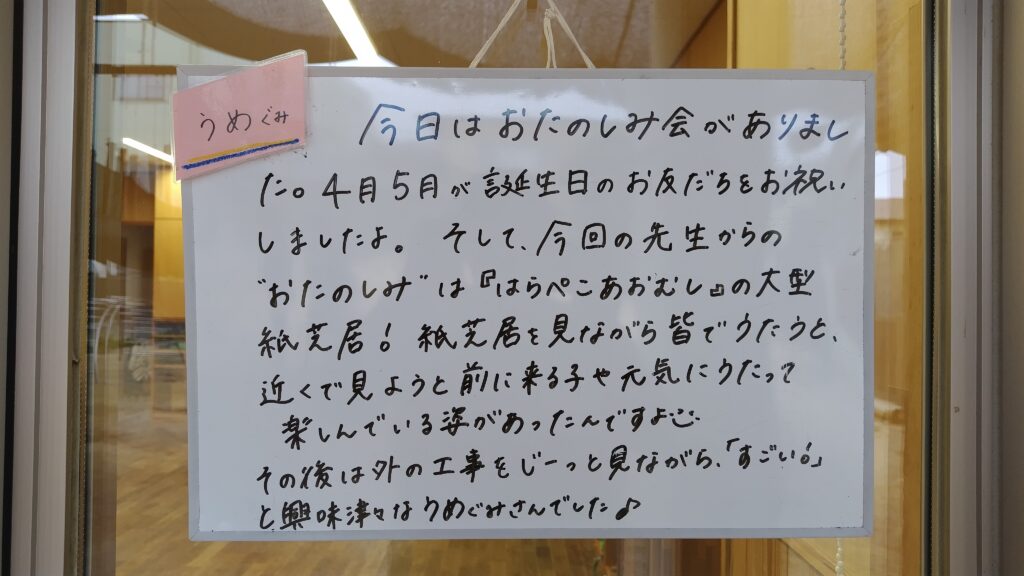 うめぐみ
今日はおたのしみ会がありまし
た。4月5月が誕生日のお友だちをお祝い
しましたよ。そして、今回の先生からの
"おたのしみ"は『はらぺこあおむし』の大型
紙芝居！紙芝居を見ながら皆でうたうと、
近くで見ようと前に来る子や元気にうたって
楽しんでいる姿があったんですよ
その後は外の工事をじーっと見ながら、「すごい！」
と興味津々なうめぐみさんでした♪